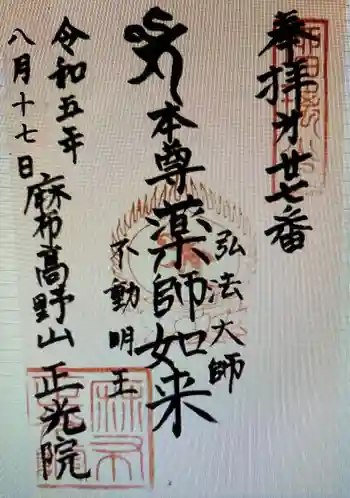 奉拝第廿七番
弘法大師
本尊薬師如来
不動明王
令和五年
八月十七日
麻布高野山 正光院